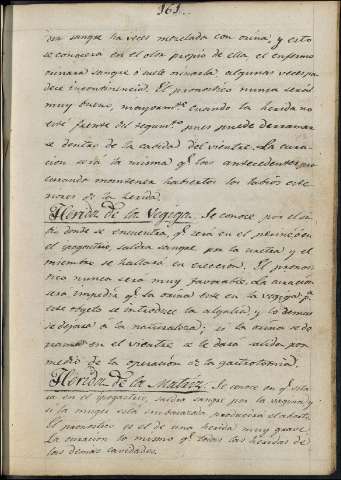 161.
sea sangre ha veces mezclada con orina, y esto
se conocera en el olor propio de ella el enfermo
orinara sangre o suele minarla, algunas veces pa
dece incontinencia. El pronostico nunca será
muy bueno, mayoram.te cuando la herida no
esté frente del pues puede derramar
se dentro de la cabidad del vientre. La cura-
cion será la misma q.e los antecedentes pro
curando mantener habiertos los labios este-
riores de la herida.
Heridas de la Vegiga. Se conoce por el si-
tio donde se encuentra, q.e será en el perineo o en
el ipogastrio, saldra sangre por la uretra y el
miembro se hallará en ereccion. El pronos-
tico nunca será muy favorable. La curacion
será impedir q.e la orina esté en la vegiga p.a
este objeto se introduce la algalia, y lo demas
se dejara a la naturaleza; si la orina se de
rrama en el vientre se le dará salida por
medio de la operacion de la gastrotomia.
Heridas de la Matriz. Se conoce en q.e esta-
ra en el ipogastrio, saldra sangre por la vagina, y
si la muger está embarazada producira el aborto.
El pronostico es el de una herida muy grave.
La curacion lo mismo q.e todas las heridas de
las demas cavidades.